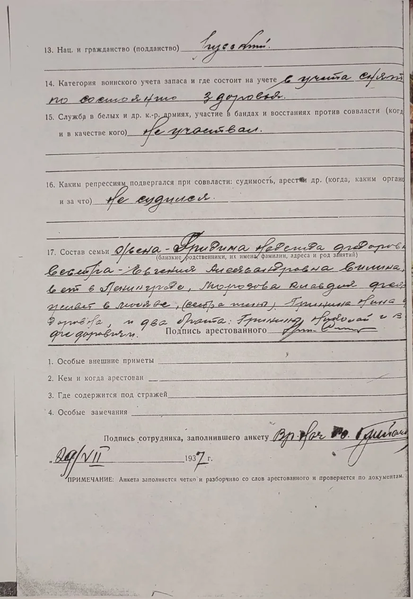 13. Нац. и гражданство (подданство)
14. Категория воинского учета запаса и где состоит на учете с учета снят
по состоянию здоровья.
15. Служба в белых и др. к.-р. армиях, участие в бандах и восстаниях против соввласти (когда
и в качестве кого) Не участвал.
16. Каким репрессиям подвергался при соввласти: судимость, арест и др. (когда, каким орган
и за что) не судился.
17. Состав семьи жена-Гридина
(близкие родственники, их имена, фамилии, адреса и род занятий)
Сестра-Евгения Александровна
в ет в Ленинграде, Морозова Клавдия
живет в (сестра жены), Гришина
и два брата: Гришины Николай и
федоровичи.
Подпись арестованного
1. Особые внешние приметы
2. Кем и когда арестован
3. Где содержится под стражей
4. Особые замечания
Подпись сотрудника, заполнившего анкету Вр. Нач
29/VII 1937 г.
ПРИМЕЧАНИЕ: Анкета заполняется четко и разборчиво со слов арестованного и проверяется по документам.